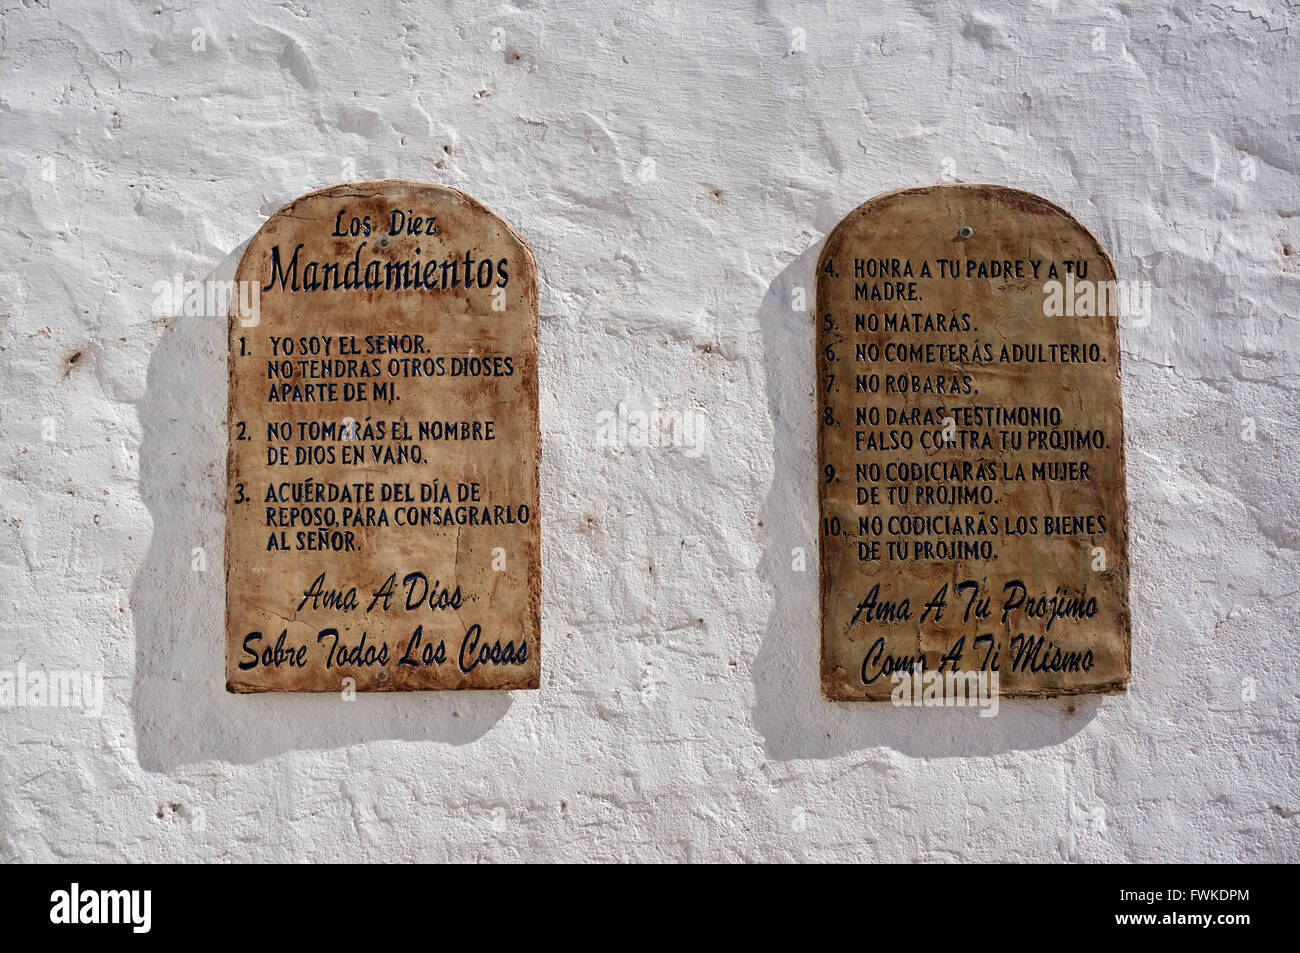 Los Diez
Mandamientos
1. YO SOY EL SEÑOR.
NO TENDRAS OTROS DIOSES
APARTE DE MI.
2. NO TOMARÁS EL NOMBRE
DE DIOS EN VANO.
3. ACUÉRDATE DEL DÍA DE
REPOSO, PARA CONSAGRARLO
AL SEÑOR.
Ama A Dios
Sobre Todas Las Cosas
4. HONRA A TU PADRE Y A TU
MADRE.
5. NO MATARÁS.
6. NO COMETERÁS ADULTERIO.
7. NO ROBARAS.
8. NO DARAS TESTIMONIO
FALSO CONTRA TU PRÓJIMO.
9. NO CODICIARÁS LA MUJER
DE TU PRÓJIMO.
10. NO CODICIARÁS LOS BIENES
DE TU PROJIMO.
Ama A Tu Projimo
Como A Ti Mismo
alamy stock photo
FWKDPM
www.alamy.com